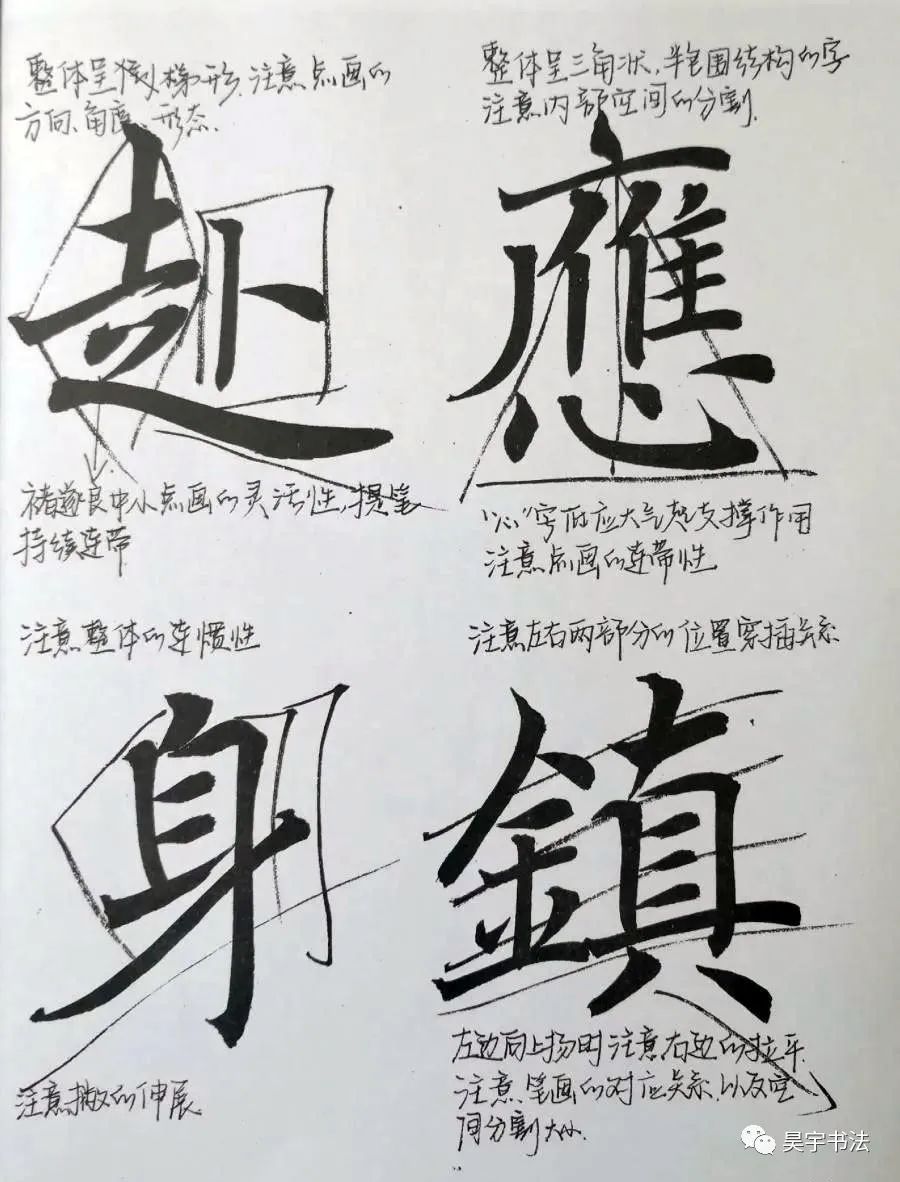 整体呈倾斜梯形.注意点画的
方向、角度、形态.
赴
褚遂良中小点画的灵活性,提笔
持续连带
整体呈三角状.半包围结构的字
注意内部空间的分割.
應
"心"字底应大气起支撑作用
注意点画的连带性
注意整体的连惯性
身
注意撇的伸展
注意左右两部分的位置穿插关系
鎮
左边向上扬时注意右边的拉平.
注意笔画的对应关系.以及空
间分割大小.
昊宇书法